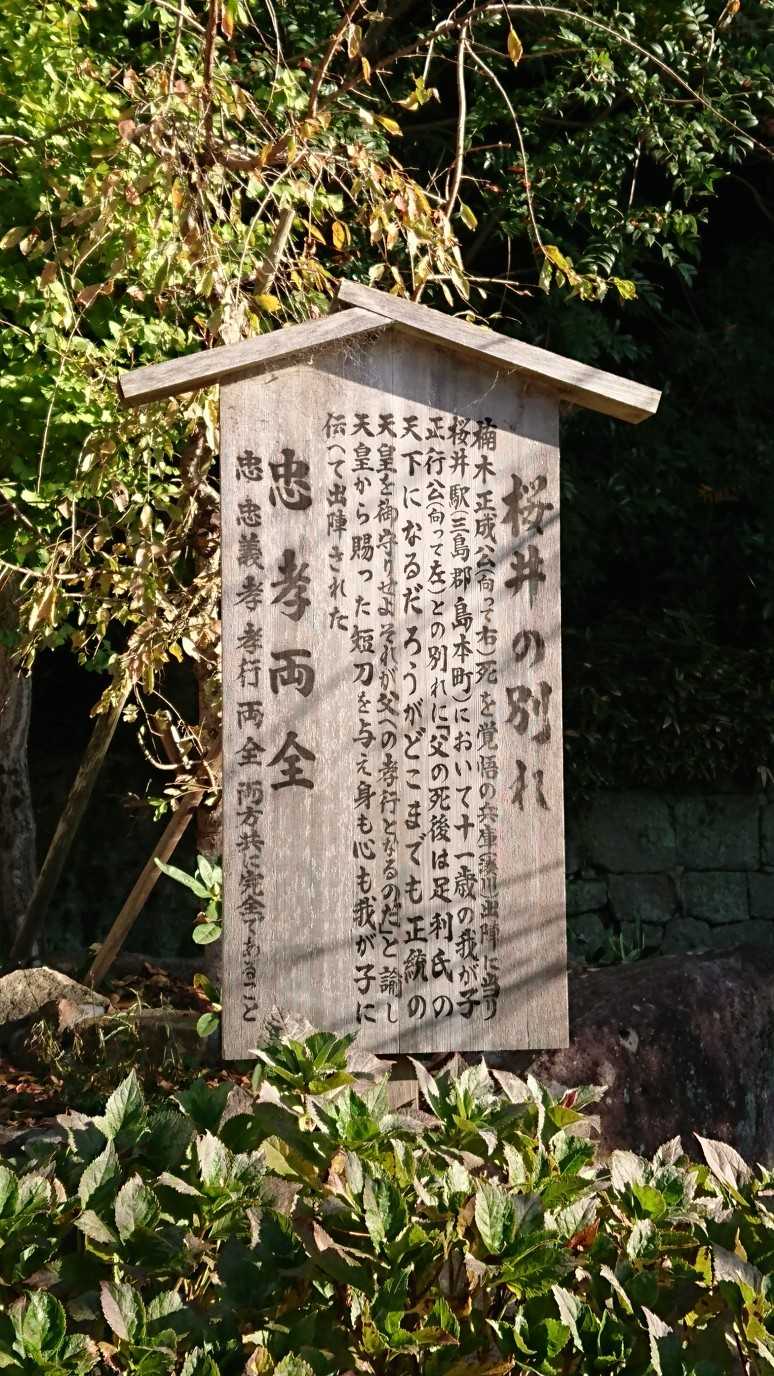 桜井の別れ
楠木正成公(向って右)死を覚悟の兵庫(湊川)出陣に当り
桜井駅(三島郡島本町)において十一歳の我が子
正行公(向って左)との別れに「父の死後は足利氏の
天下になるだろうがどこまでも正統の
天皇を御守りせよそれが父への孝行となるのだ」と諭し
天皇から賜った短刀を与え身も心も我が子に
伝へて出陣された
忠孝両全
忠 忠義 孝 孝行 両全 両方共に完全であること